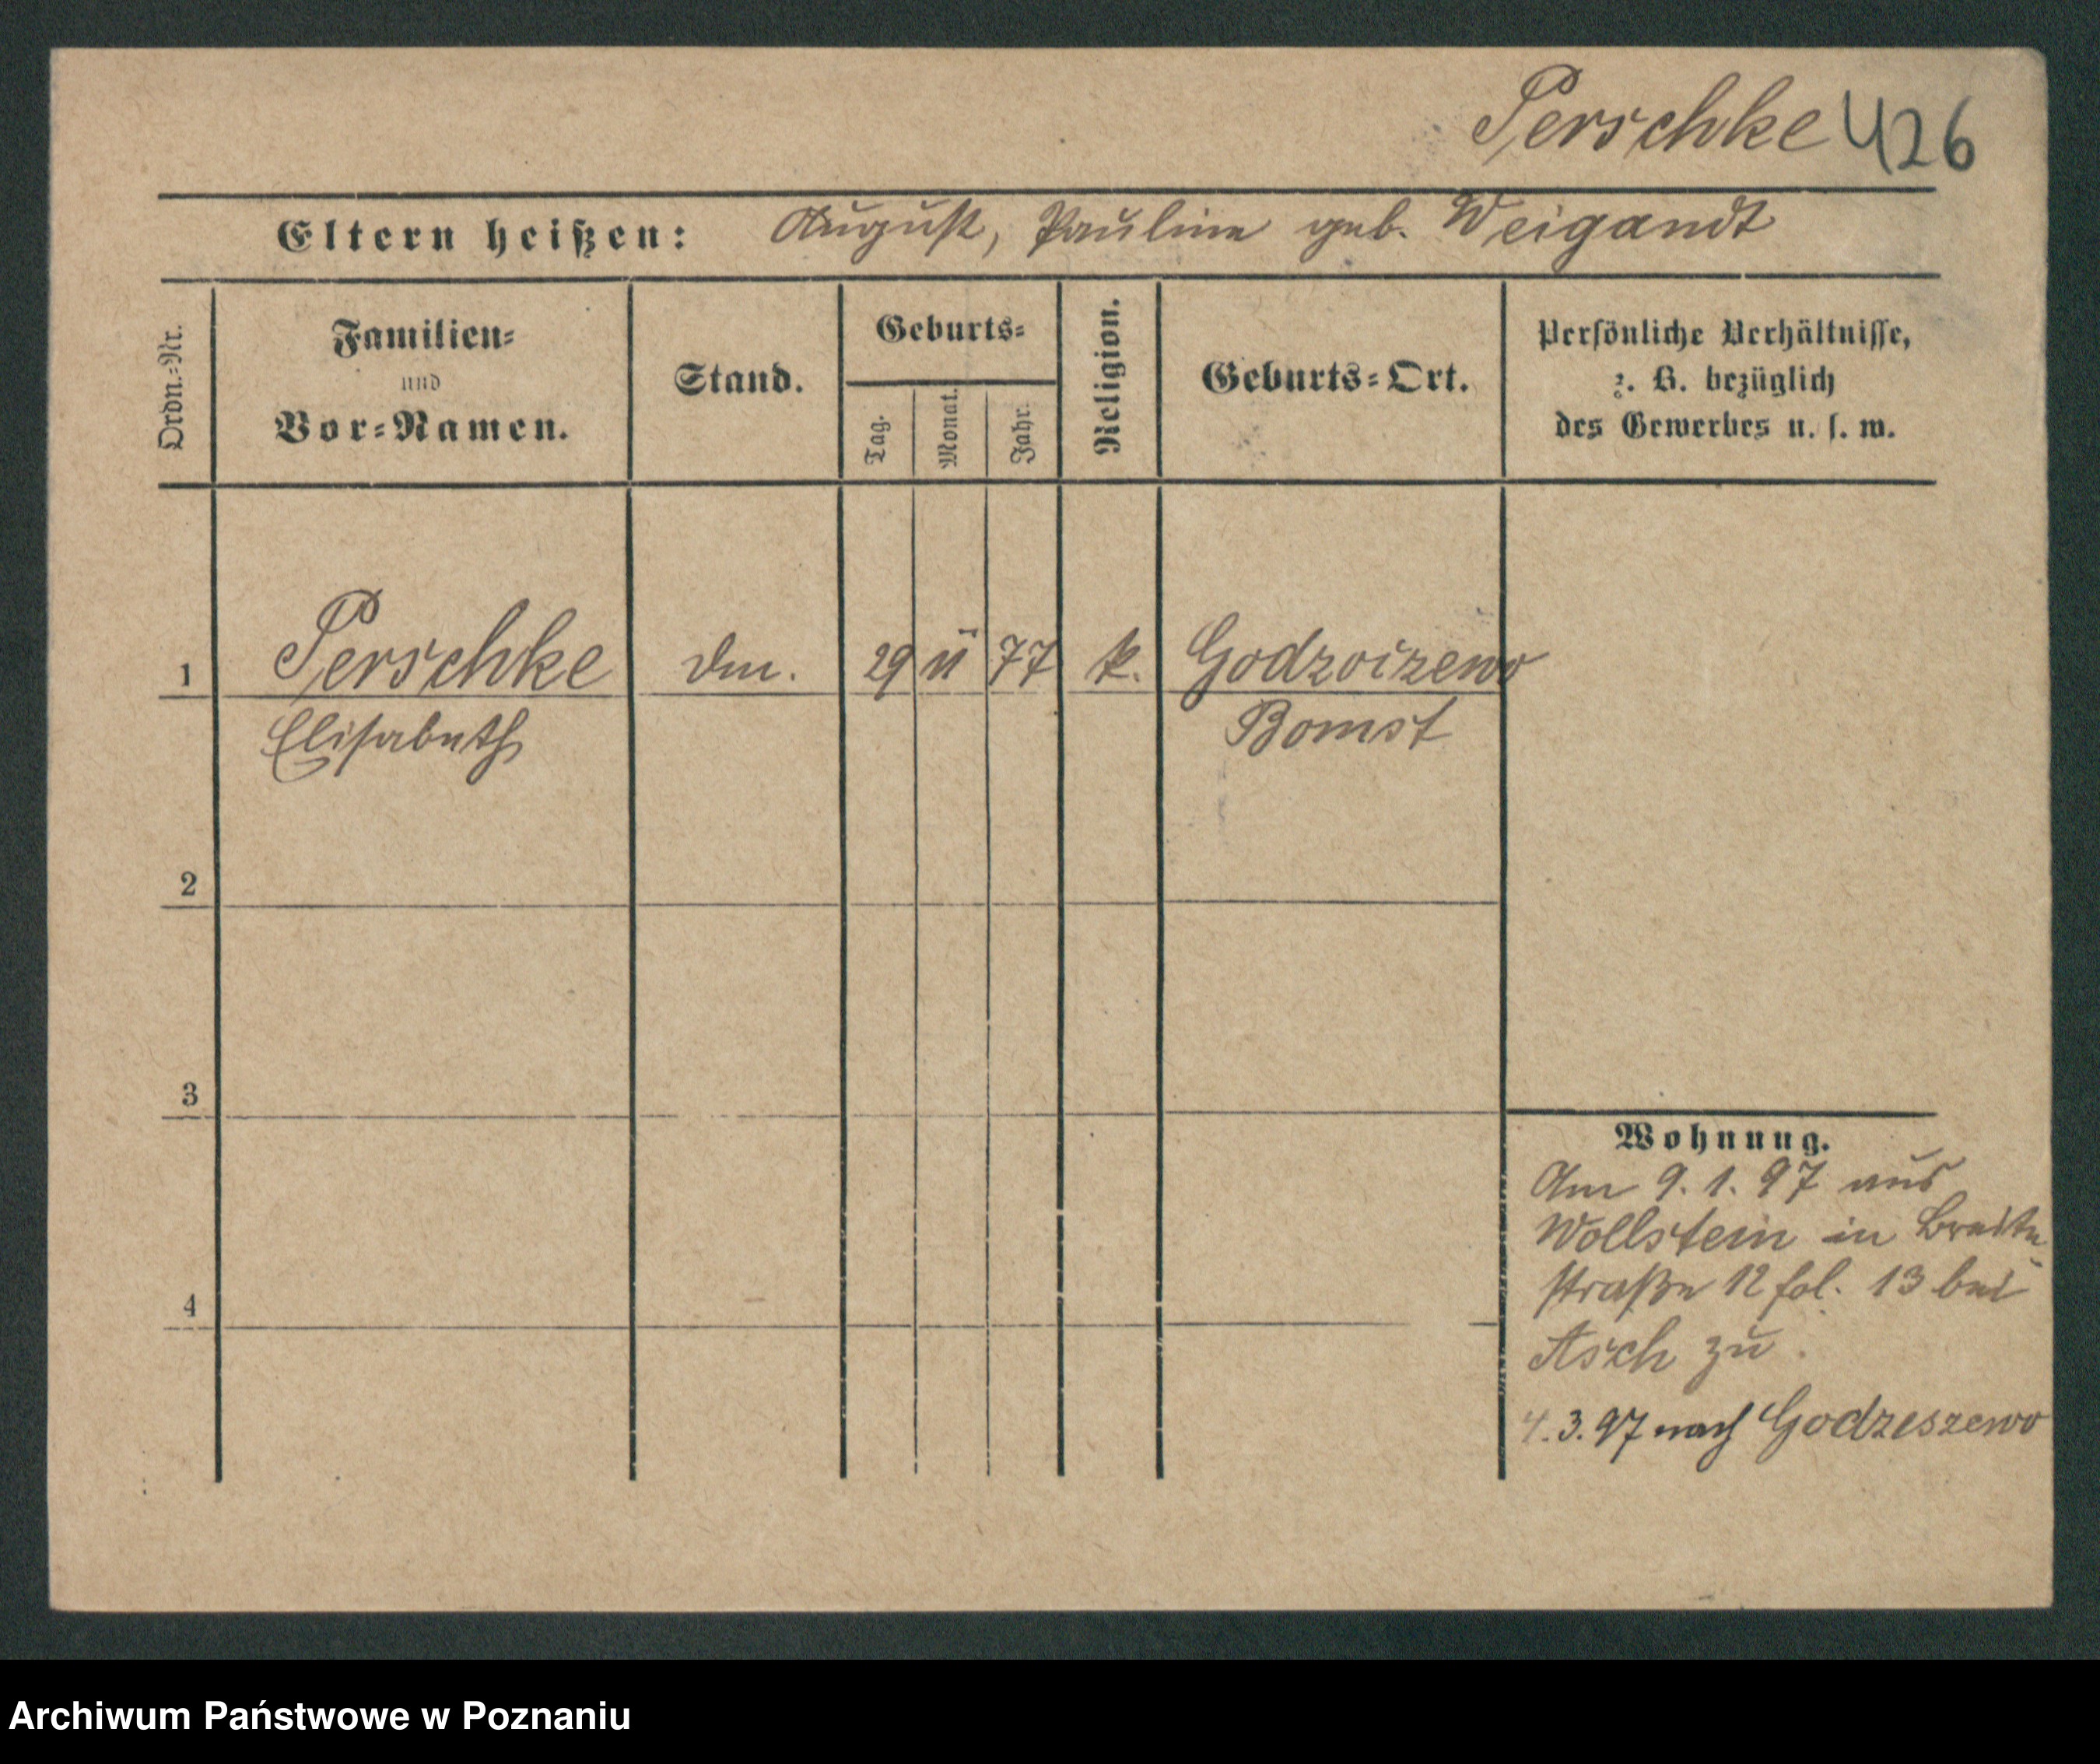 Perschke 426
Eltern heißen: August, Pauline geb. Weigandt
Ordn.-Nr.
Familien-
und
Vor-Namen.
Stand.
Geburts-
Tag.
Monat.
Jahr.
Religion.
Geburts-Ort.
Persönliche Verhältnisse,
z. B. bezüglich
des Gewerbes u. s. w.
1 Perschke 29 11 77 k. Godzoizewo
Elisabeth Bomst
2
3
4
Wohnung.
Am 9. 1. 97 aus
Wollstein in Breite
straße 12 fol. 13 bei
Asch zu.
4. 3. 97 nach Godzeszewo
Archiwum Państwowe w Poznaniu